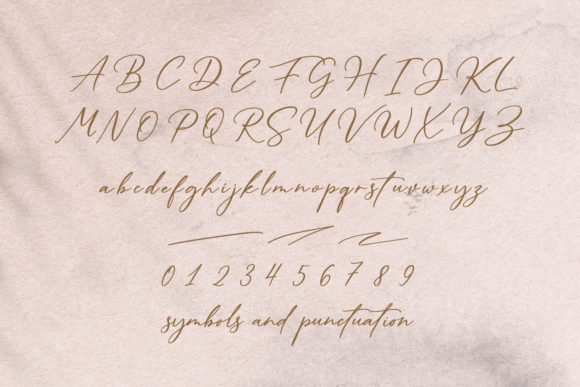 A B C D E F G H I J K L
M N O P Q R S U V W X Y Z
a b c d e f g h i j k l m n o p q r s t u v w x y z
0 1 2 3 4 5 6 7 8 9
symbols and punctuation